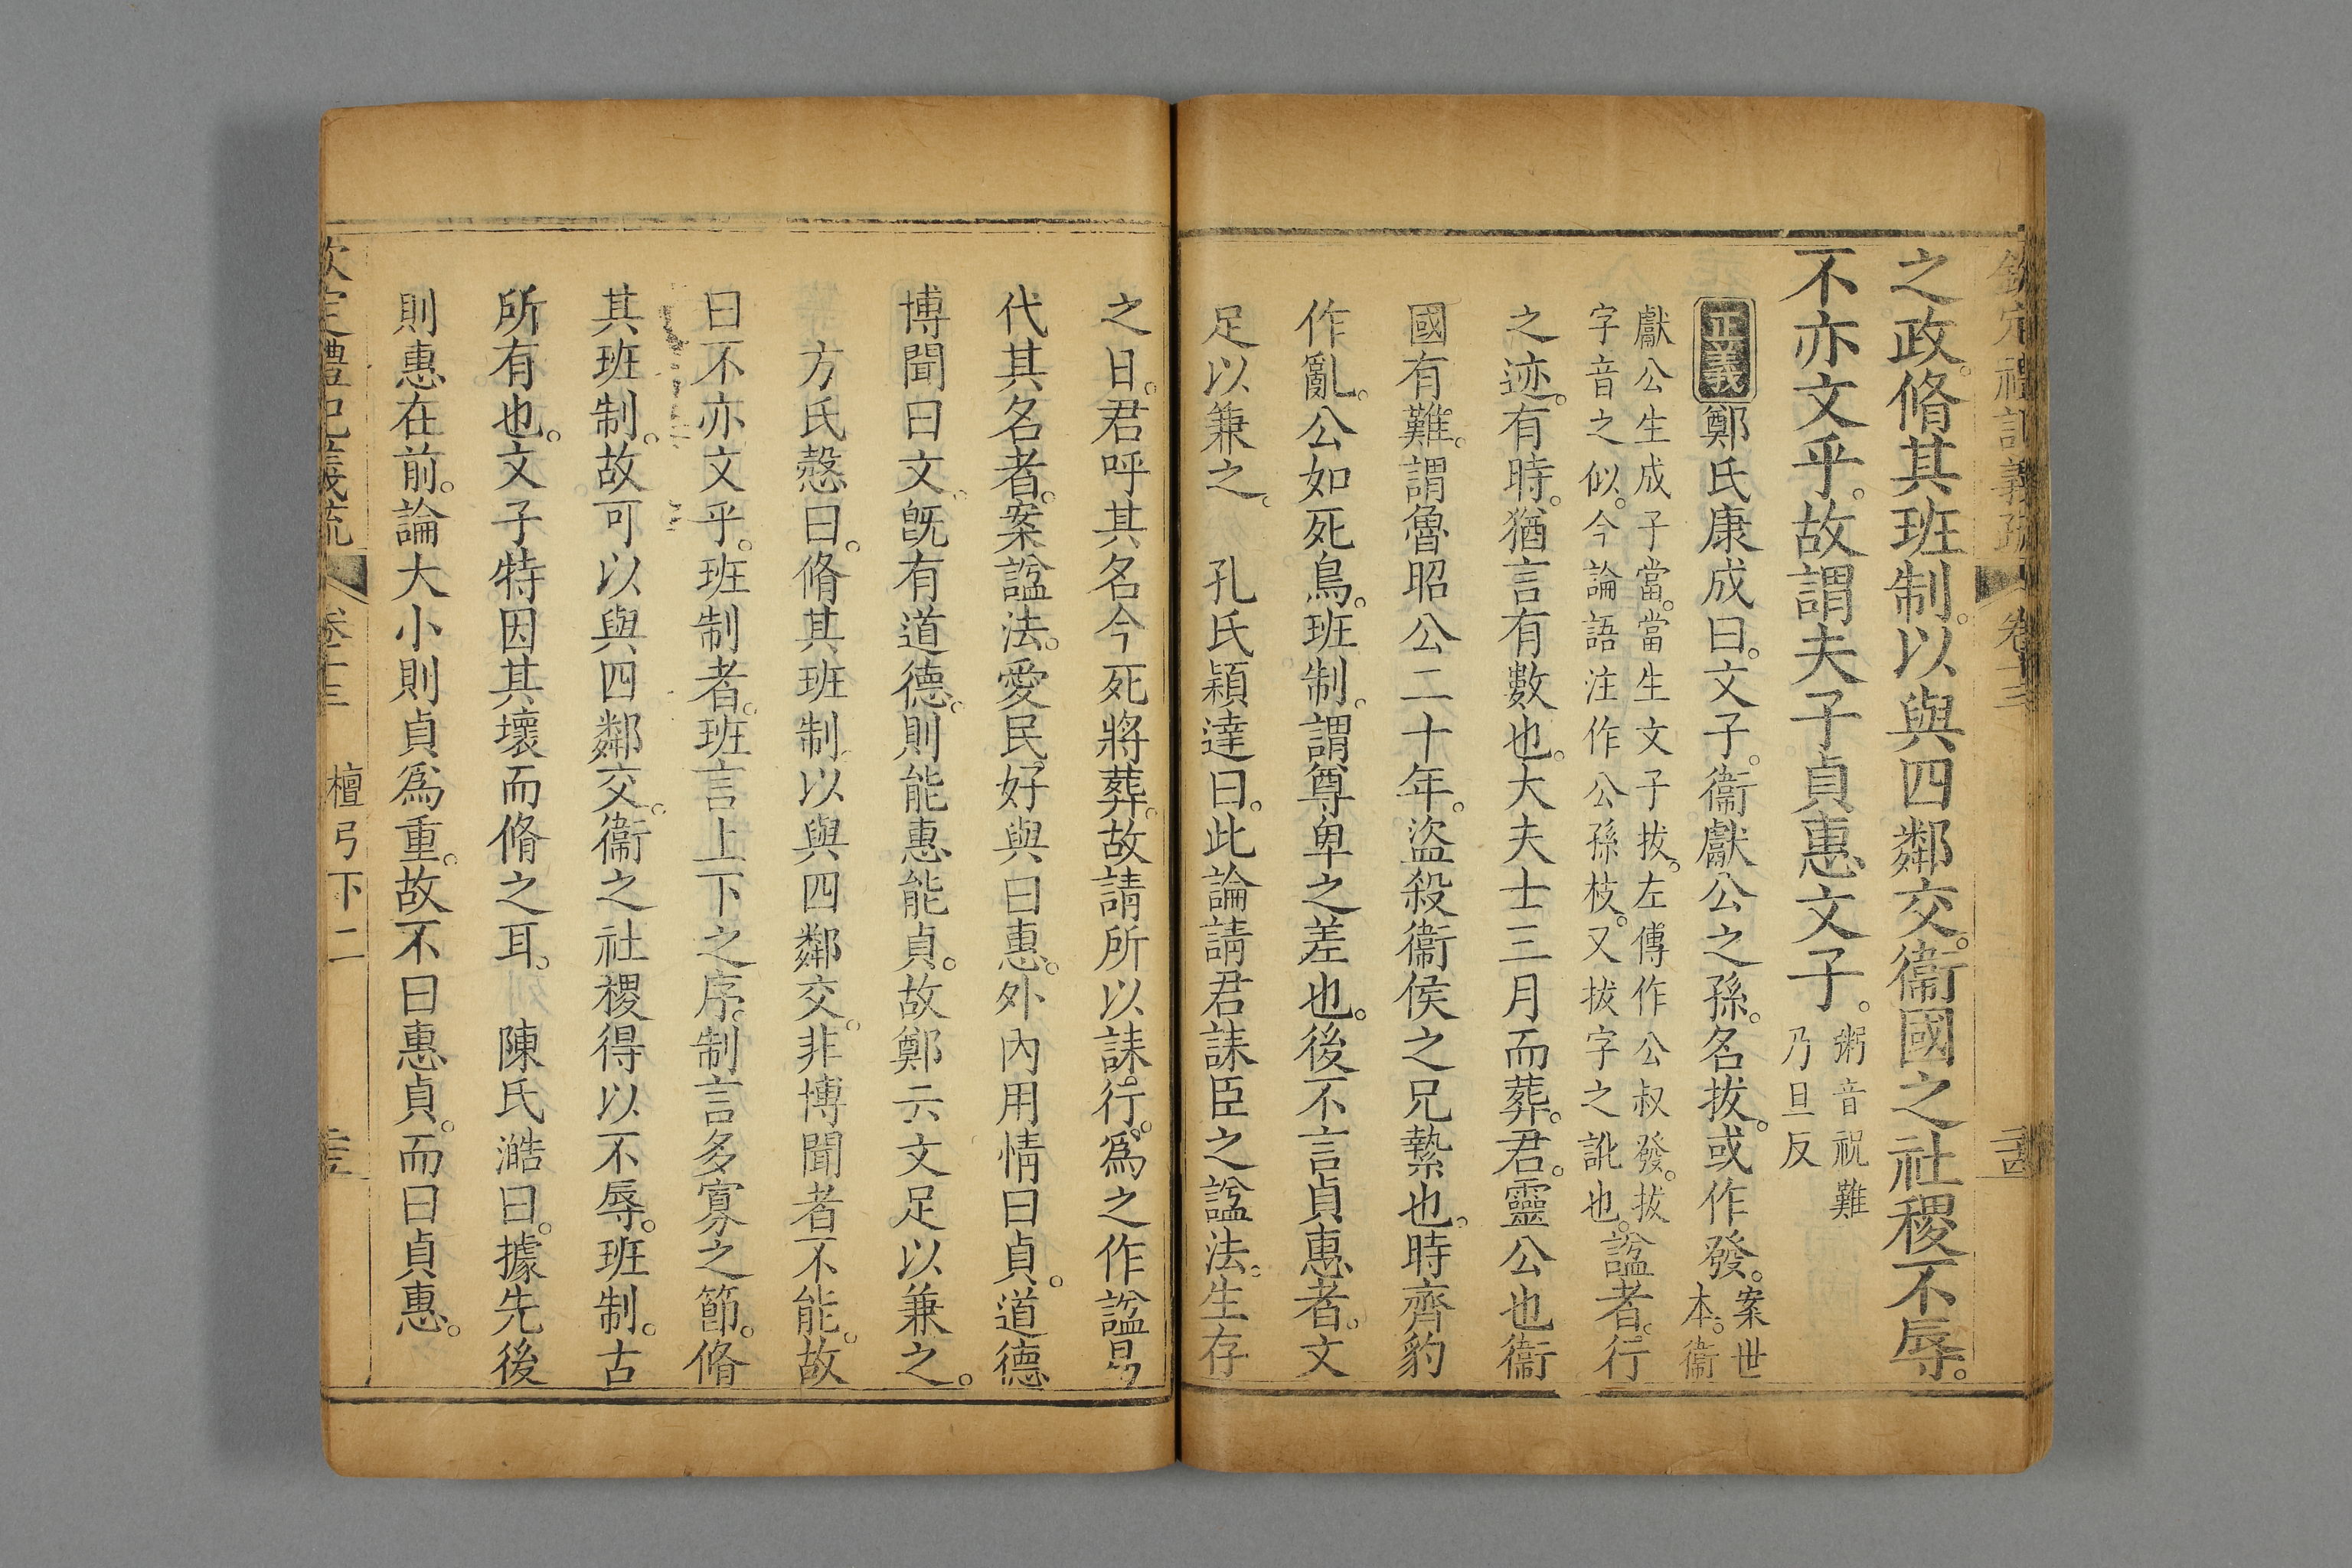 欽定禮記義疏 卷十三 二十四
之政脩其班制以與四鄰交衞國之社稷不辱
不亦文乎故謂夫子貞惠文子粥音祝難乃旦反
正義鄭氏康成曰文子衞獻公之孫名拔或作發案世本衞
獻公生成子當當生文子拔左傳作公叔發拔
字音之似今論語注作公孫枝又拔字之訛也諡者行
之迹有時猶言有數也大夫士三月而葬君靈公也衞
國有難謂魯昭公二十年盜殺衞侯之兄縶也時齊豹
作亂公如死鳥班制謂尊卑之差也後不言貞惠者文
足以兼之 孔氏穎達曰此論請君誄臣之諡法生存
之日君呼其名今死將葬故請所以誄行為之作諡易
代其名者案諡法愛民好與曰惠外內用情曰貞道德
博聞曰文旣有道德則能惠能貞故鄭云文足以兼之
方氏慤曰脩其班制以與四鄰交非博聞者不能故
曰不亦文乎班制者班言上下之序制言多寡之節脩
其班制故可以與四鄰交衞之社稷得以不辱班制古
所有也文子特因其壞而脩之耳 陳氏澔曰據先後
則惠在前論大小則貞爲重故不曰惠貞而曰貞惠
欽定禮記義疏 卷十三 檀弓下二